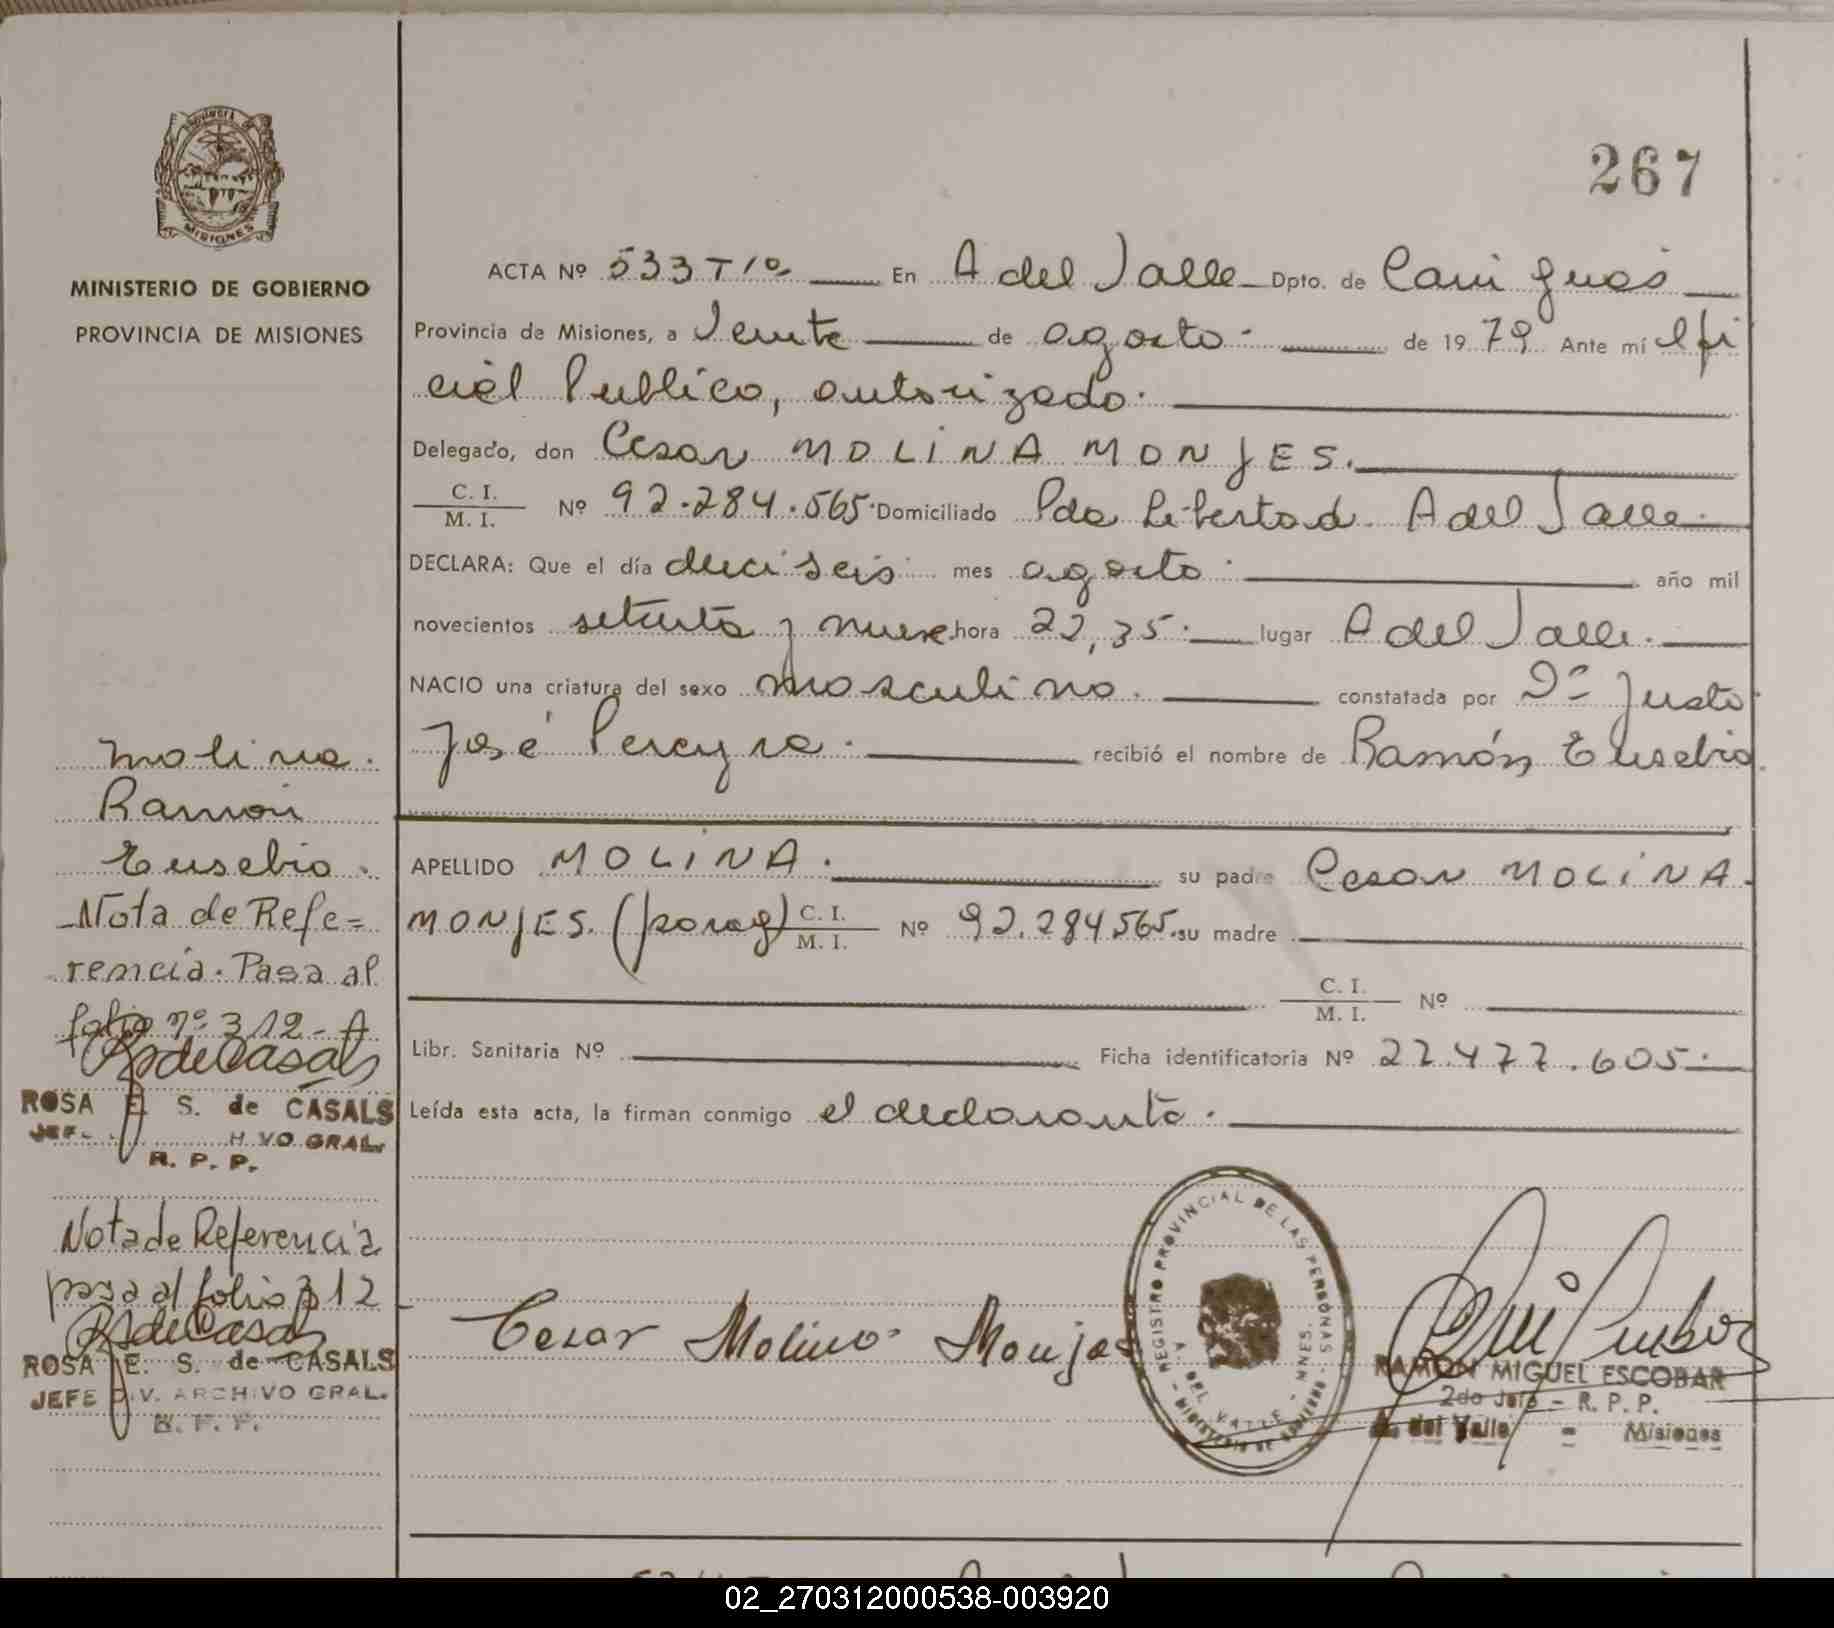 PROVINCIA DE
MISIONES
MINISTERIO DE GOBIERNO
PROVINCIA DE MISIONES
267
ACTA Nº 533 T 1º En A del Valle Dpto. de Cainguás
Provincia de Misiones, a Veinte de agosto de 1979 Ante mí Ofi
cial Publico, autorizado.
Delegado, don Cesar MOLINA MONJES.
C. I.
M. I. Nº 92.284.565. Domiciliado Pdo Libertad. A del Valle.
DECLARA: Que el día dieciseis mes agosto año mil
novecientos setenta y nueve hora 22,35. lugar A del Valle.
NACIO una criatura del sexo masculino. constatada por Dr Justo
José Pereyra. recibió el nombre de Ramón Eusebio.
APELLIDO MOLINA. su padre Cesar MOLINA
MONJES. (parag) C. I.
M. I. Nº 92.284.565. su madre
C. I.
M. I. Nº
Libr. Sanitaria Nº Ficha identificatoria Nº 27.477.605.
Leída esta acta, la firman conmigo el declarante.
Molina.
Ramón
Eusebio.
Nota de Refe=
rencia. Pasa al
folio nº 312-A
RSdeCasals
ROSA E. S. de CASALS
JEF. H VO GRAL.
R. P. P.
Nota de Referencia
pasa al folio 312
RSdeCasals
ROSA E. S. de CASALS
JEFE DIV. ARCHIVO GRAL.
R. P. P.
Cesar Molina Monjes
REGISTRO PROVINCIAL DE LAS PERSONAS
A. DEL VALLE - MNES.
MINISTERIO DE GOBIERNO
RAMON MIGUEL ESCOBAR
2do Jefe - R. P. P.
A. del Valle = Misiones
02_270312000538-003920